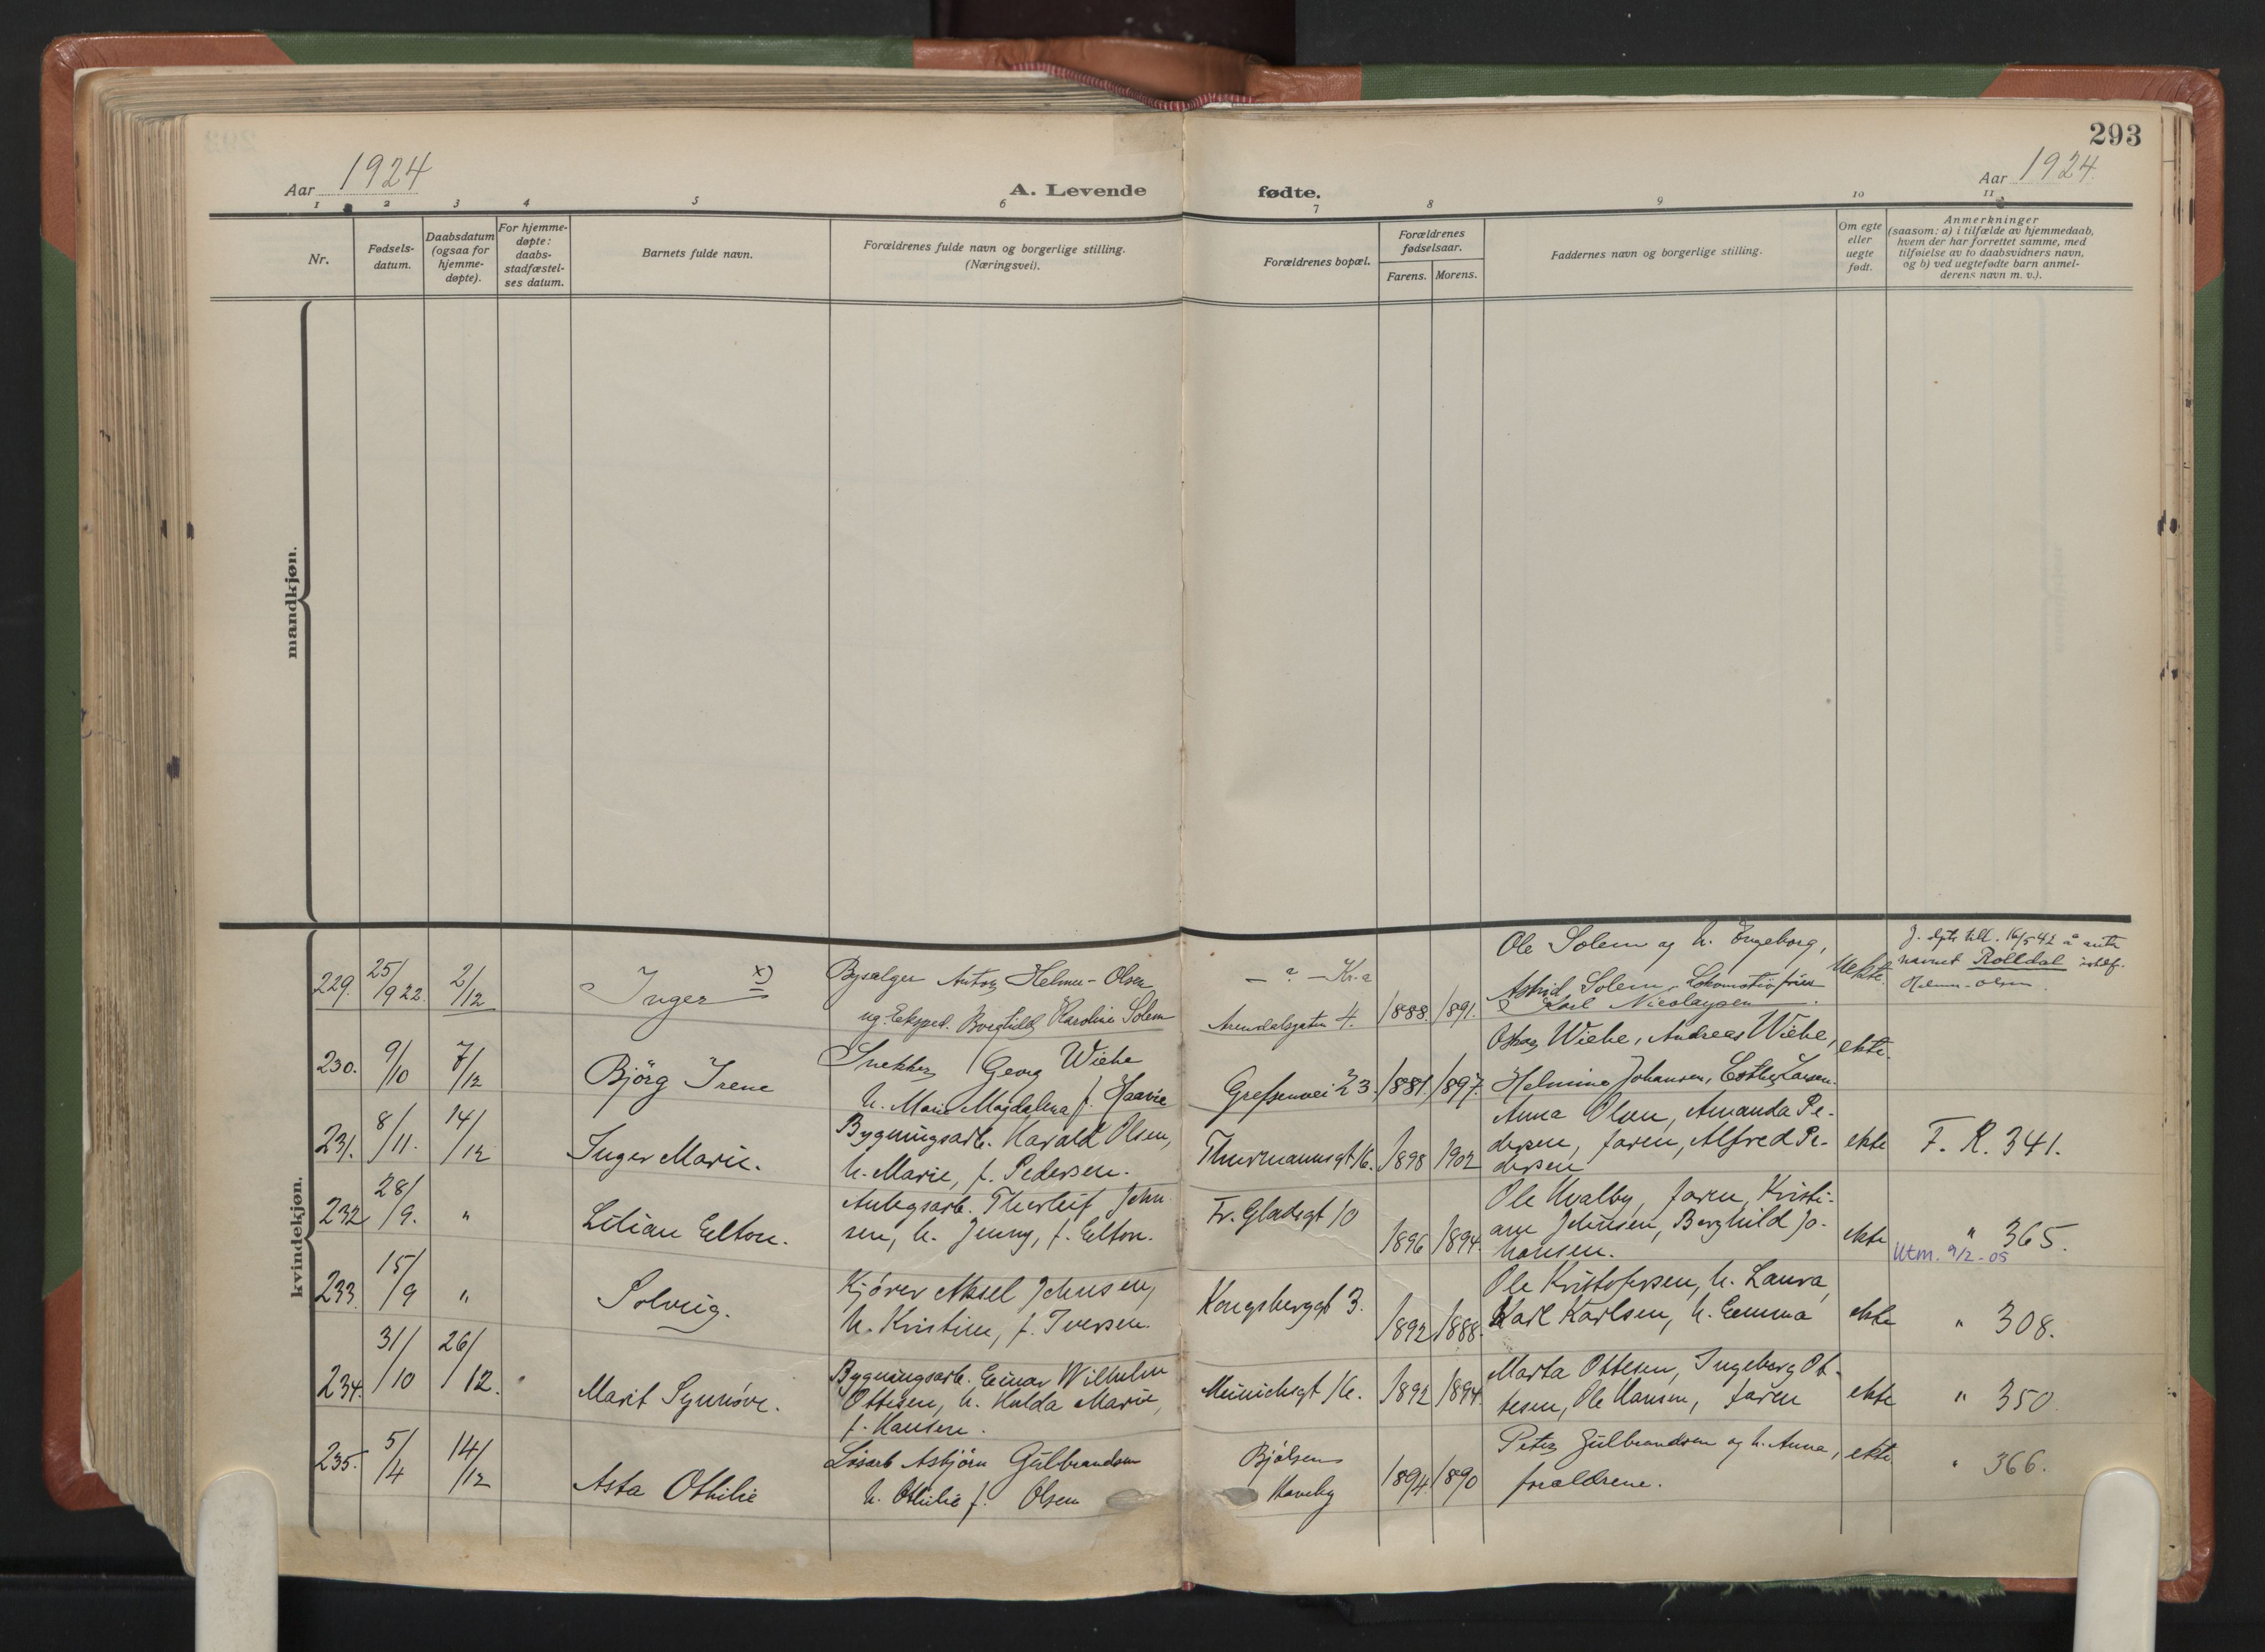 293
Aar 1924
A. Levende fødte.
Aar 1924.
1 2 3 4 5 6 7 8 9 10 11
Nr.
Fødsels-
datum.
Daabsdatum
(ogsaa for
hjemme-
døpte).
For hjemme-
døpte:
daabs-
stadfæstel-
ses datum.
Barnets fulde navn.
Forældrenes fulde navn og borgerlige stilling.
(Næringsvei).
Forældrenes bopæl.
Forældrenes
fødselsaar.
Farens. Morens.
Faddernes navn og borgerlige stilling.
Om egte
eller
uegte
født.
Anmerkninger
(saasom: a) i tilfælde av hjemmedaab,
hvem der har forrettet samme, med
tilføielse av to daabsvidners navn,
og b) ved uegtefødte barn anmel-
derens navn m. v.).
mandkjøn.
kvindekjøn.
229.
25/9 22.
2/12
Inger x)
Anton Helmer-Olsen
ug. Eksped. Borghild Karoline Solem
— ? — Kr.a
Arendalsgaten 4.
1888. 1891.
Ole Solem og h. Engeborg,
Astrid Solem, Lokomotivfører
Karl Nicolaysen.
Uekte.
J. dpts till. 16/5 42 å anta
navnet Rolldal istdf.
Helmer-Olsen.
230.
9/10
7/12
Björg Irene
Snekker Georg Wiehe
h. Marie Magdalena f. Haavie
Grefsenvei 23.
1881. 1897.
Oskar Wiehe, Andreas Wiehe,
Helmine Johansen, Esther Larsen.
ekte.
231.
8/11.
14/12
Inger Marie.
Bygningsarb. Harald Olsen,
h. Marie, f. Pedersen.
Thurmannsgt 16.
1898 1902
Anna Olsen, Amanda Pe-
dersen, faren, Alfred Pe-
dersen
ekte
F. R. 341.
232
28/9.
"
Lilian Elton.
Anlegsarb. Thorleif John-
sen, h. Jenny, f. Elton.
Fr. Gladsgt 10
1896 1894.
Ole Hvalby, faren, Kristi-
ane Johnsen, Borghild Jo-
hansen.
ekte
" 365.
Utm. 9/2-05
233.
15/9
"
Solveig.
Kjører Aksel Johnsen,
h. Kristine, f. Iversen.
Kongsberggt 3.
1892 1888.
Ole Kristofersen, h. Laura,
Karl Karlsen, h. Emma
ekte
" 308.
234.
31/10
26/12.
Marit Synnøve.
Bygningsarb. Einar Wilhelm
Ottesen, h. Hulda Marie,
f. Hansen.
Meinichsgt 16.
1892 1894.
Marta Ottesen, Ingeborg Ot-
tesen, Ole Hansen, faren
ekte
" 350.
235.
5/4
14/12
Asta Othilie
Løsarb Asbjörn Gulbrandsen
h. Othilie f. Olsen
Bjølsens
Haveby
1894. 1890
Peter Gulbrandsen og h. Anna,
forældrene.
ekte.
" 366.